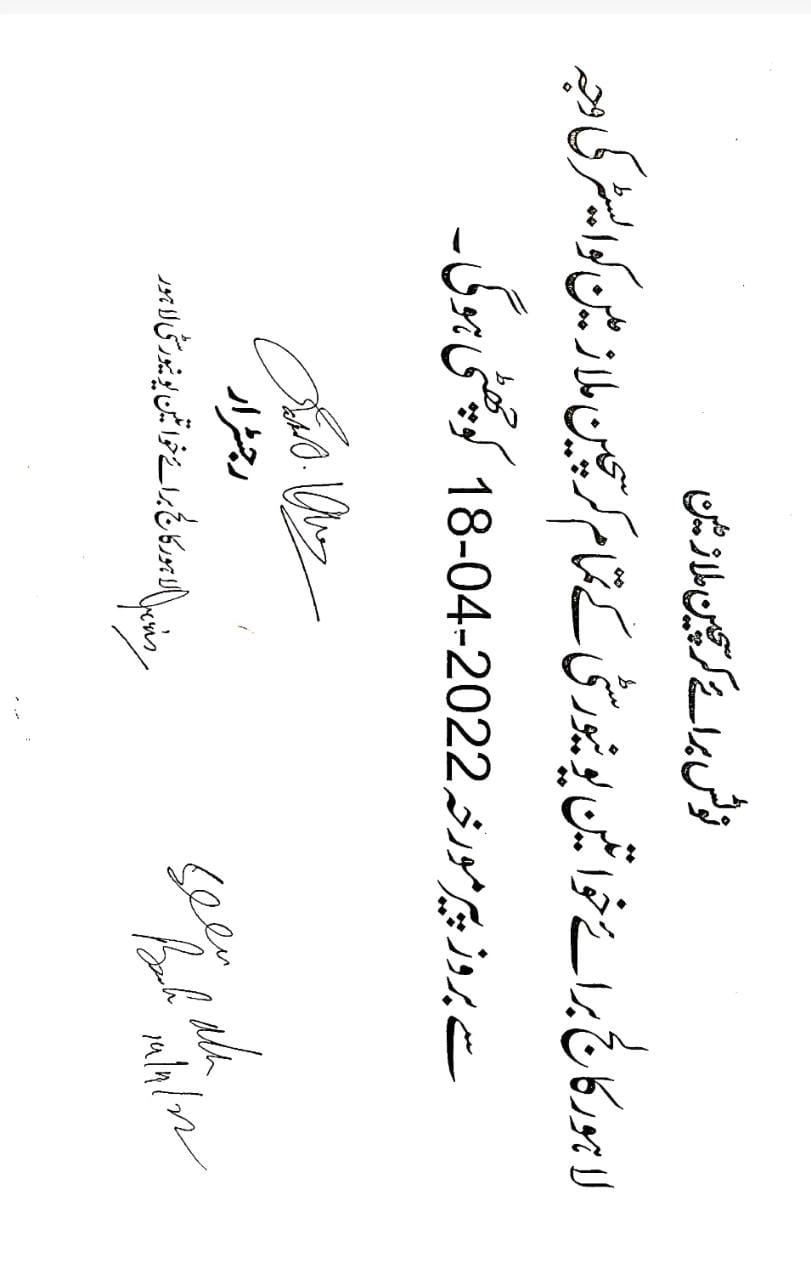 نوٹس برائے کرسچین ملازمین
لاہور کالج برائے خواتین یونیورسٹی کے تمام کرسچین ملازمین کو ایسٹر کی وجہ
سے بروز پیر مورخہ 18-04-2022 کو چھٹی ہوگی۔
رجسٹرار
لاہور کالج برائے خواتین یونیورسٹی لاہور
Seen